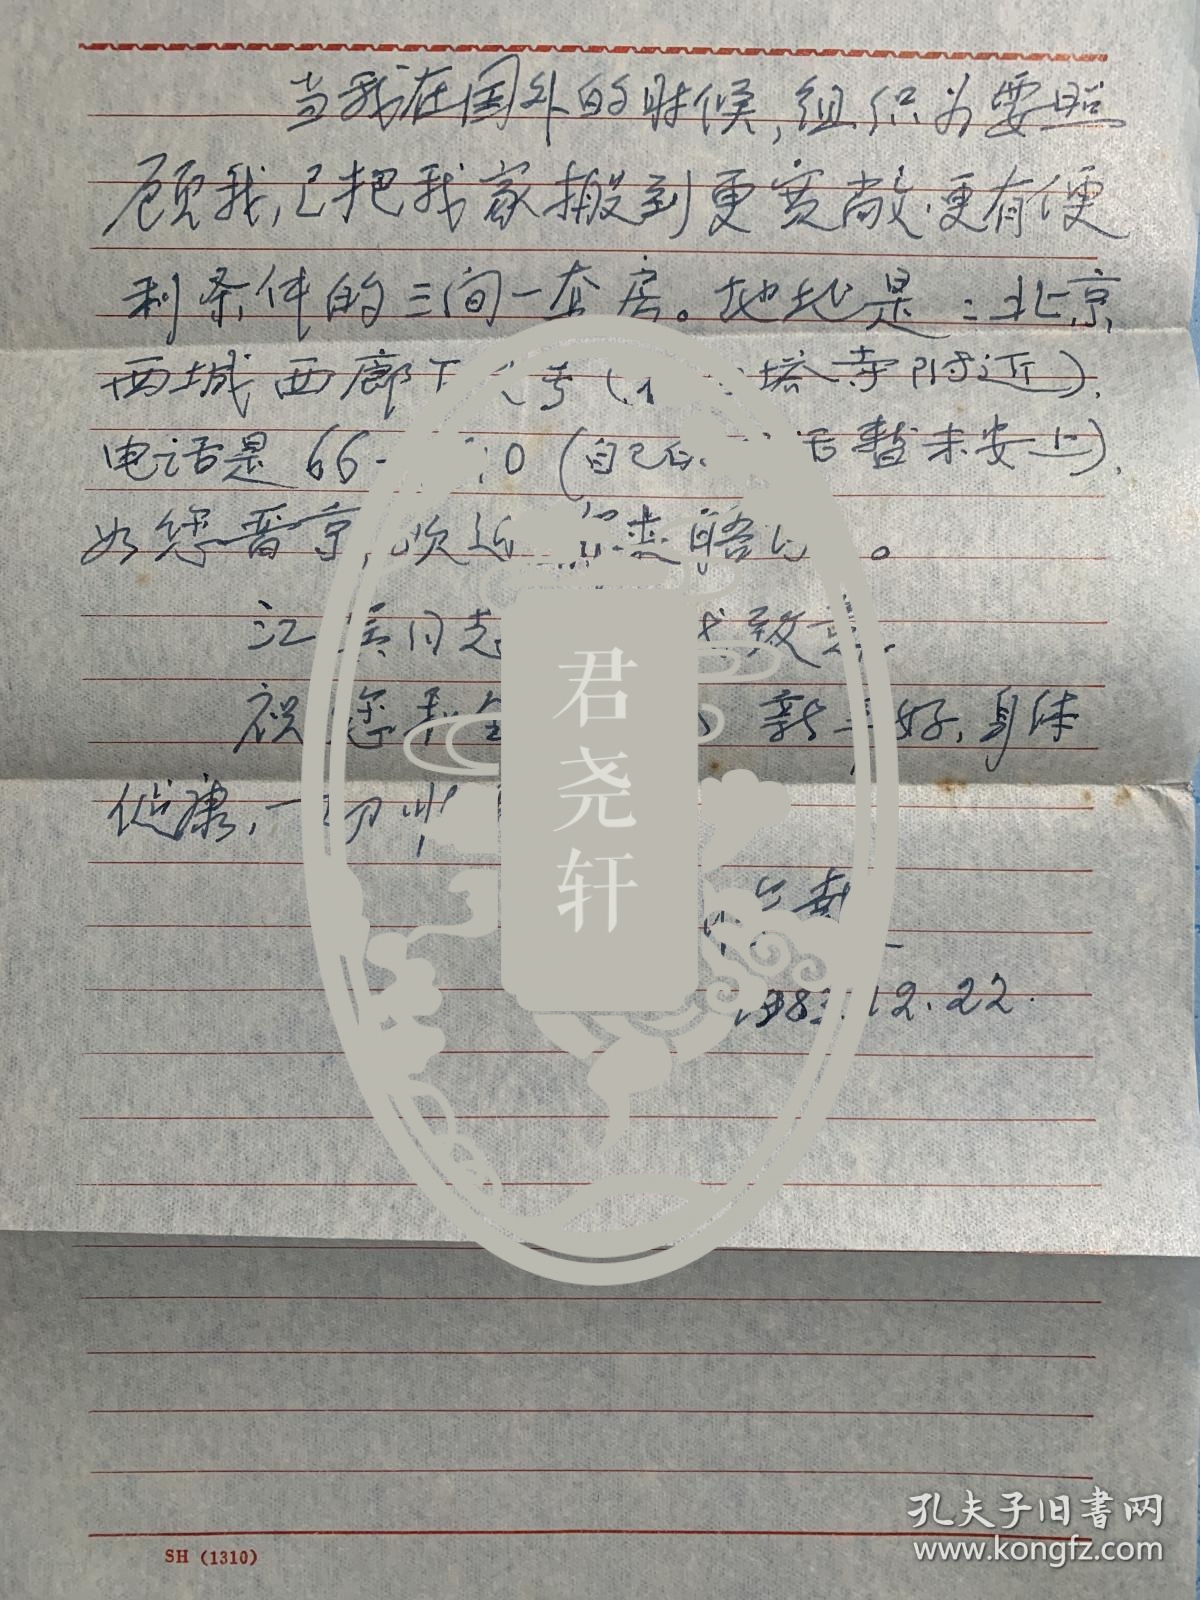 当我在国外的时候,组织为要照
顾我,已把我家搬到更宽敞、更有便
利条件的三间一套房。地址是:北京
西城西廊下 号( 塔寺附近),
电话是66- 0(自己的 话暂未安上),
如您晋京,欢迎 来晤 。
江 同志 我致意。
祝您和全 新年好,身体
健康,一切
1983.12.22.
君尧轩
SH (1310)
孔夫子旧书网
www.kongfz.com